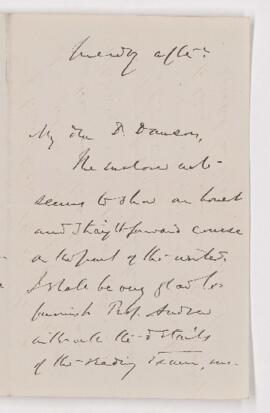 My dear Dr. Dawson,
The enclosed note
seems to show an honest
and straightforward course
on the part of the writer.
I shall be very glad to
furnish Prof. Andrew
with all the details
of the reading